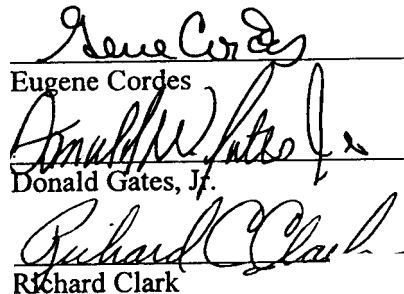 Gene Cordes
Eugene Cordes
Donald W. Gates Jr
Donald Gates, Jr.
Richard C Clark
Richard Clark